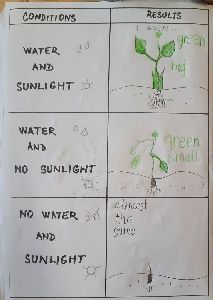 CONDITIONS
RESULTS
WATER
AND
SUNLIGHT
green
big
WATER
AND
NO SUNLIGHT
green
small
NO WATER
AND
SUNLIGHT
almost
the
same